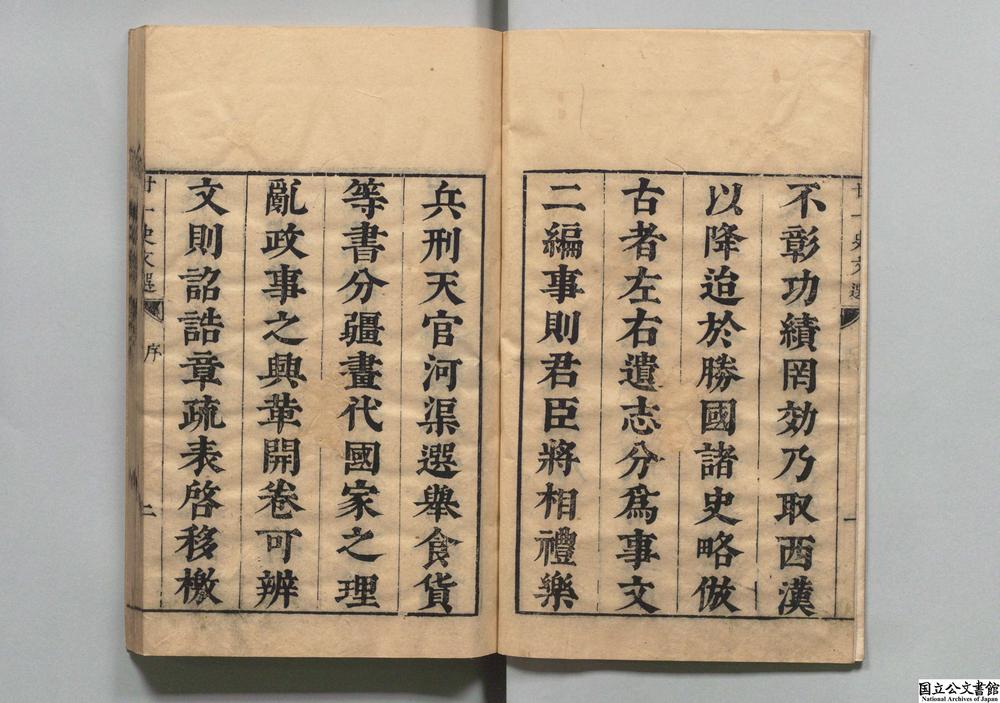 廿一史文選
一
不彰功績罔効乃取西漢
以降迨於勝國諸史略倣
古者左右遺志分爲事文
二編事則君臣將相禮樂
兵刑天官河渠選舉食貨
等書分疆畫代國家之理
亂政事之興革開卷可辨
文則詔誥章疏表啓移檄
廿一史文選
序
二
国立公文書館
National Archives of Japan